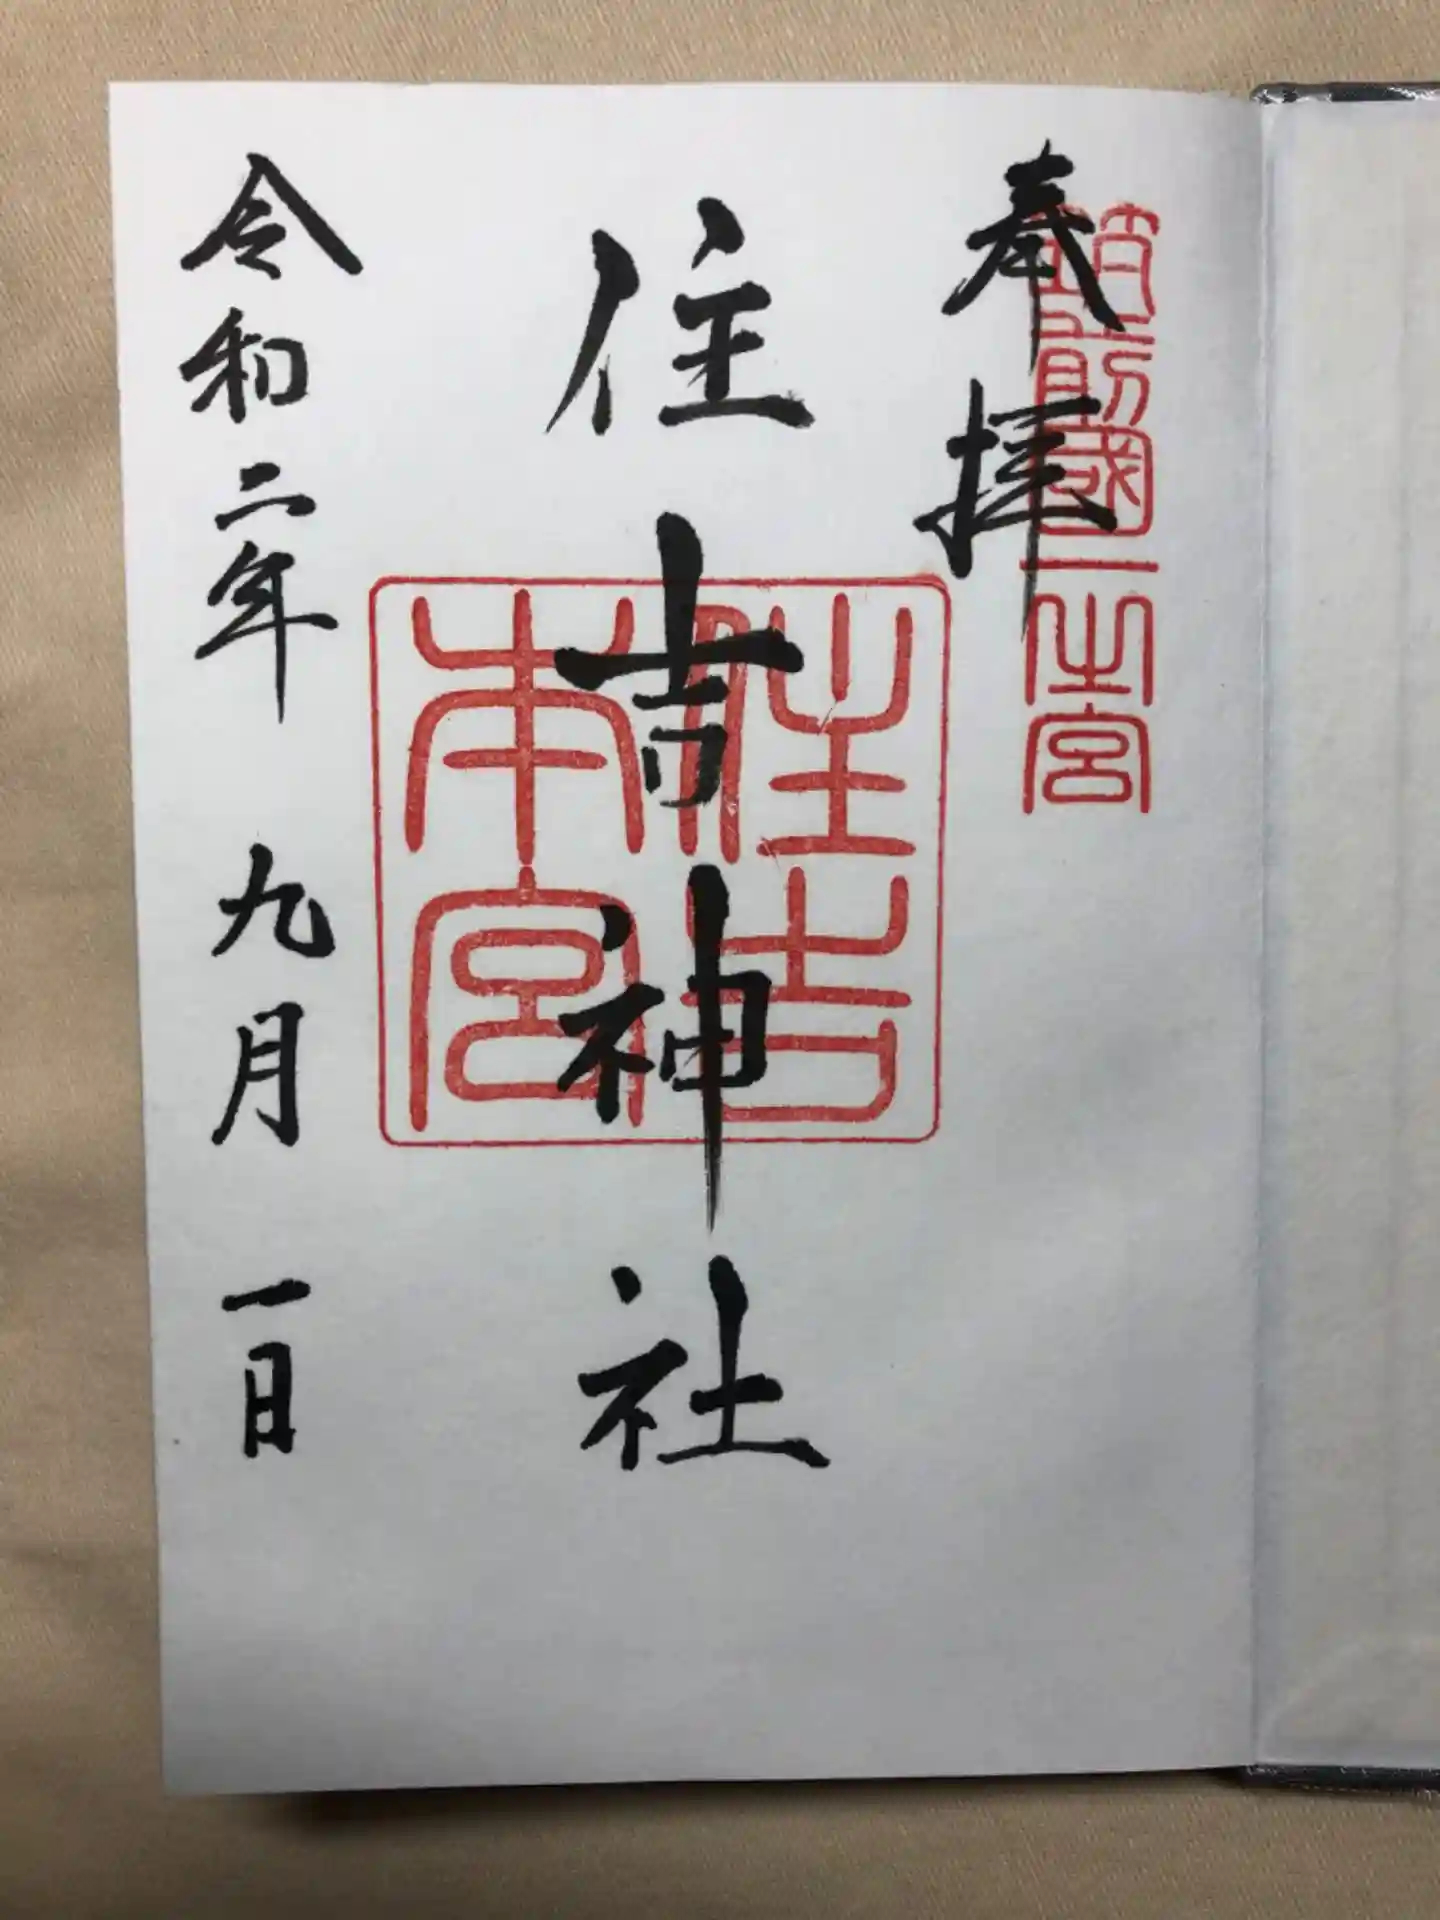 奉拝
筑前國一之宮
住吉神社
住吉
本宮
令和二年 九月 一日